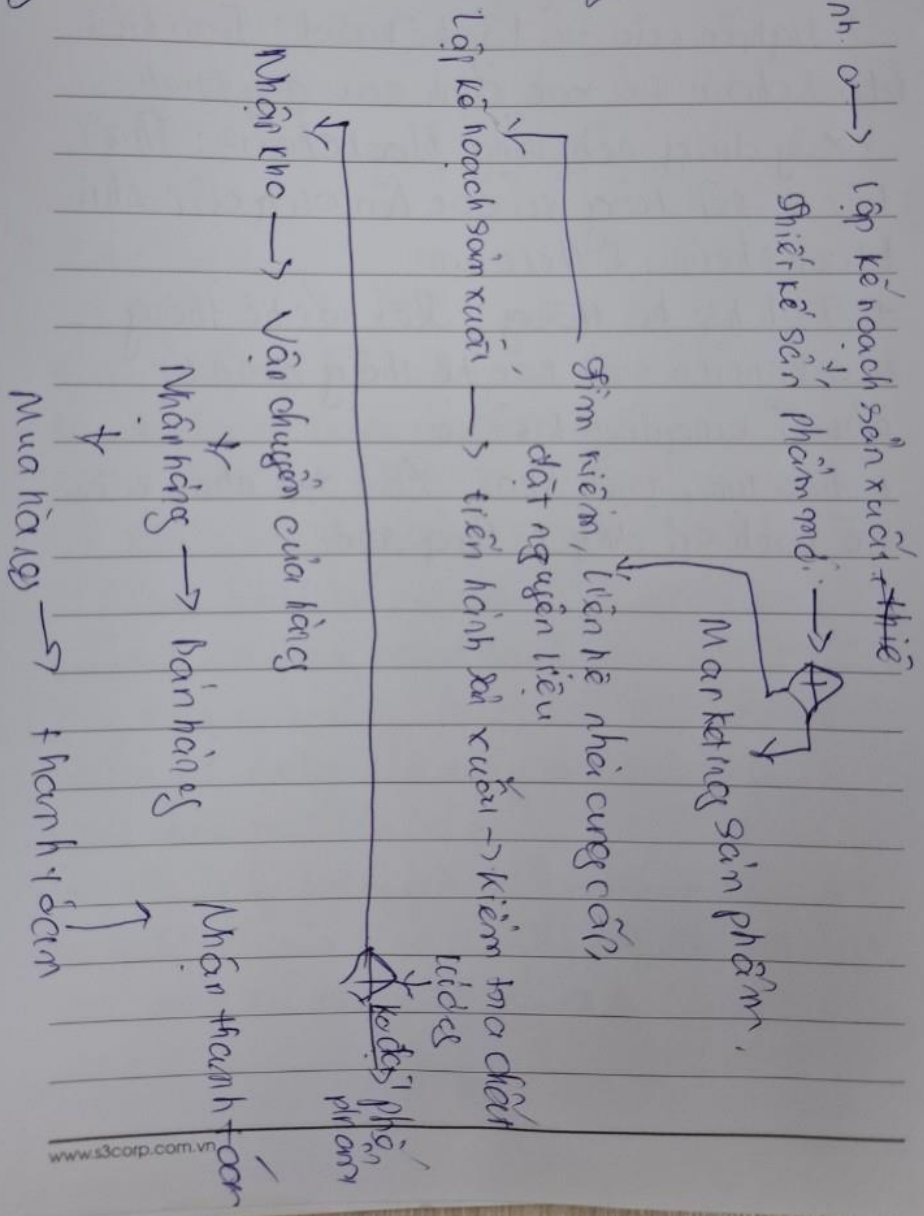 nh. → Lập kế hoạch sản xuất +
thiết kế sản phẩm mới →
Marketing sản phẩm.
tìm kiếm, liên hệ nhà cung cấp,
đặt nguyên liệu
Lập kế hoạch sản xuất → tiến hành sản xuất → kiểm tra chất
lượng
ko đạt phế
phẩm
Nhận kho → Vận chuyển cửa hàng
Nhận hàng → Bán hàng
Nhận thanh toán
Mua hàng → thanh toán
www.s3corp.com.vn